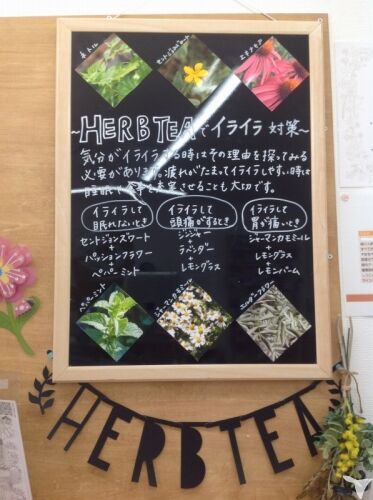 ネトル
セントジョンズワート
エキナセア
～HERBTEAでイライラ対策～
気分がイライラする時はその理由を探ってみる
必要があります。疲れがたまってイライラしやすい時は
睡眠と食事を充実させることも大切です。
イライラして
眠れないとき
セントジョンズワート
+
パッションフラワー
+
ペパーミント
イライラして
頭痛がするとき
ジンジャー
+
ラベンダー
+
レモングラス
イライラして
胃が痛いとき
ジャーマンカモミール
+
レモングラス
+
レモンバーム
ペパーミント
ジャーマンカモミール
エルダーフラワー
HERBTEA